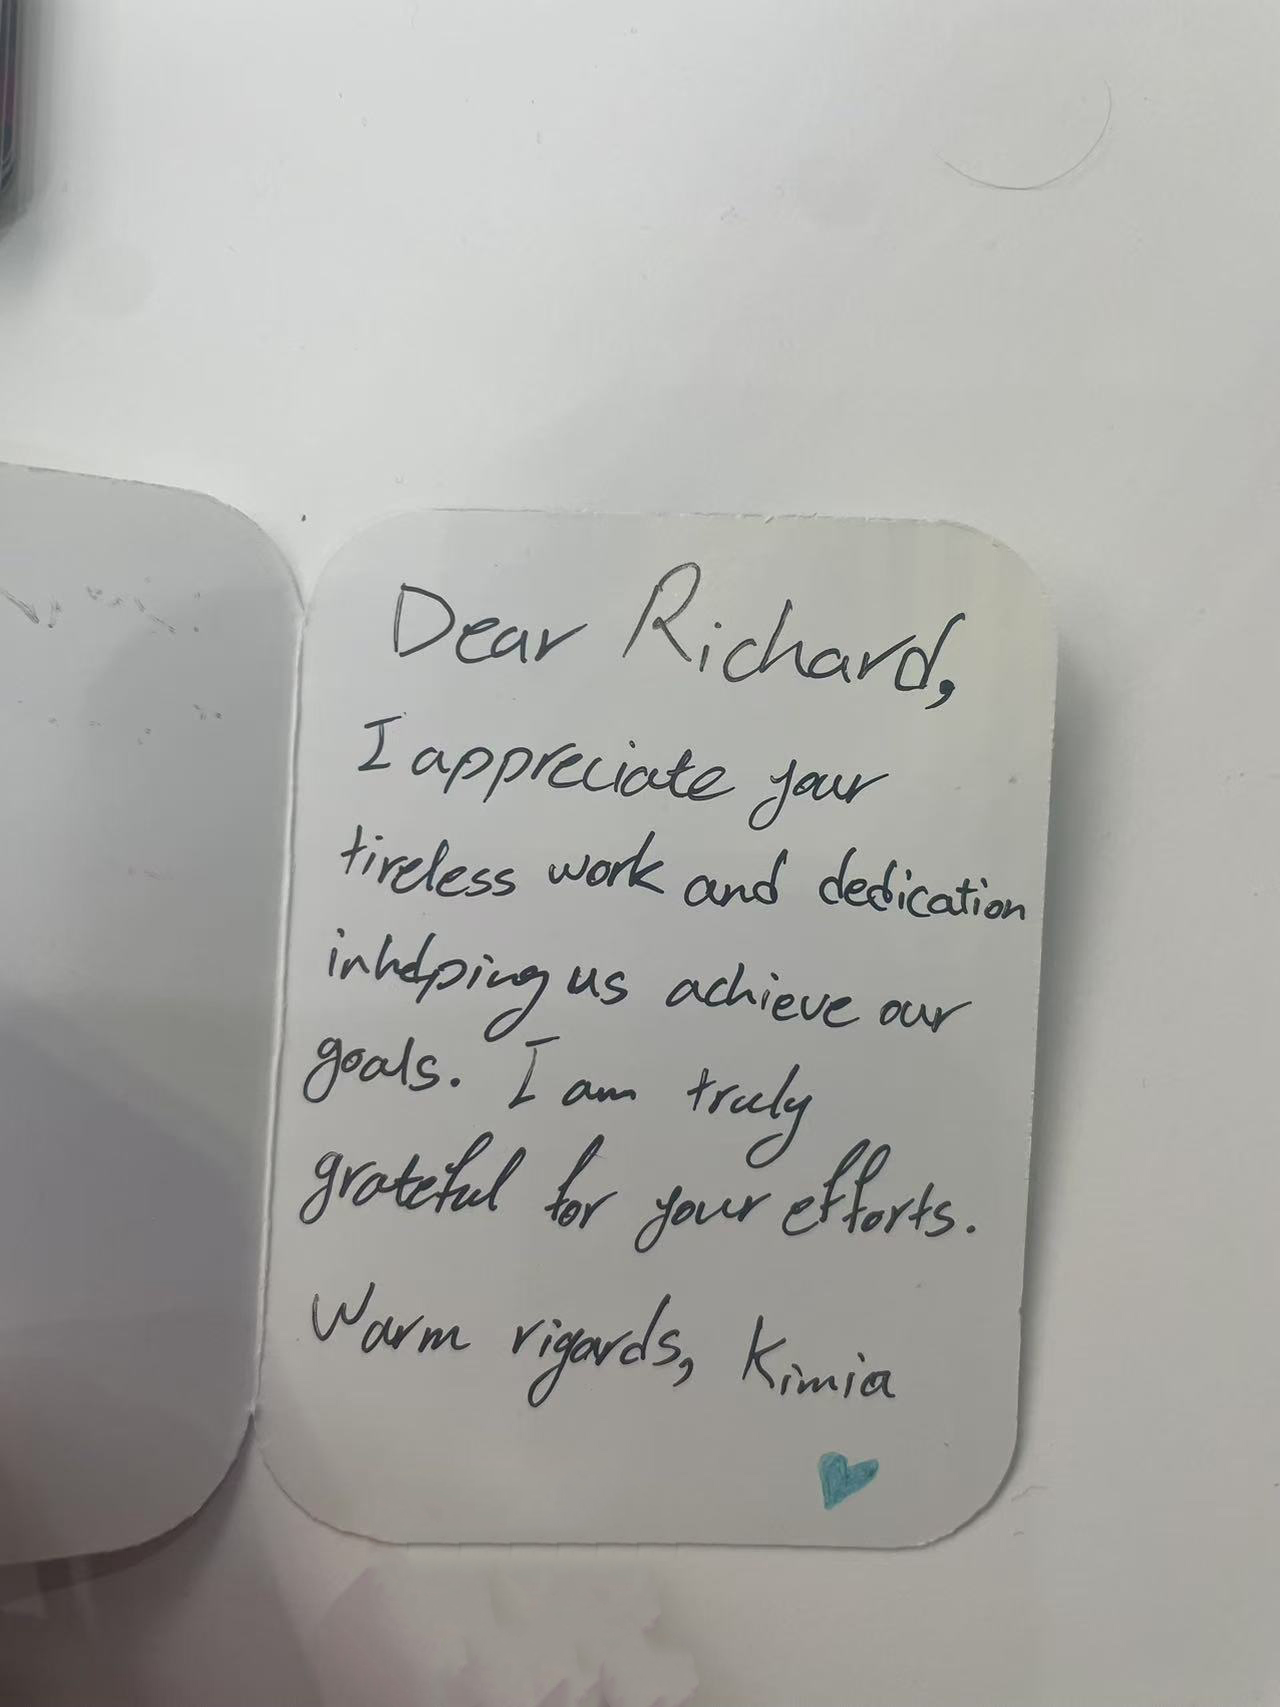 Dear Richard,
I appreciate your
tireless work and dedication
in helping us achieve our
goals. I am truly
grateful for your efforts.
Warm rigards, Kimia